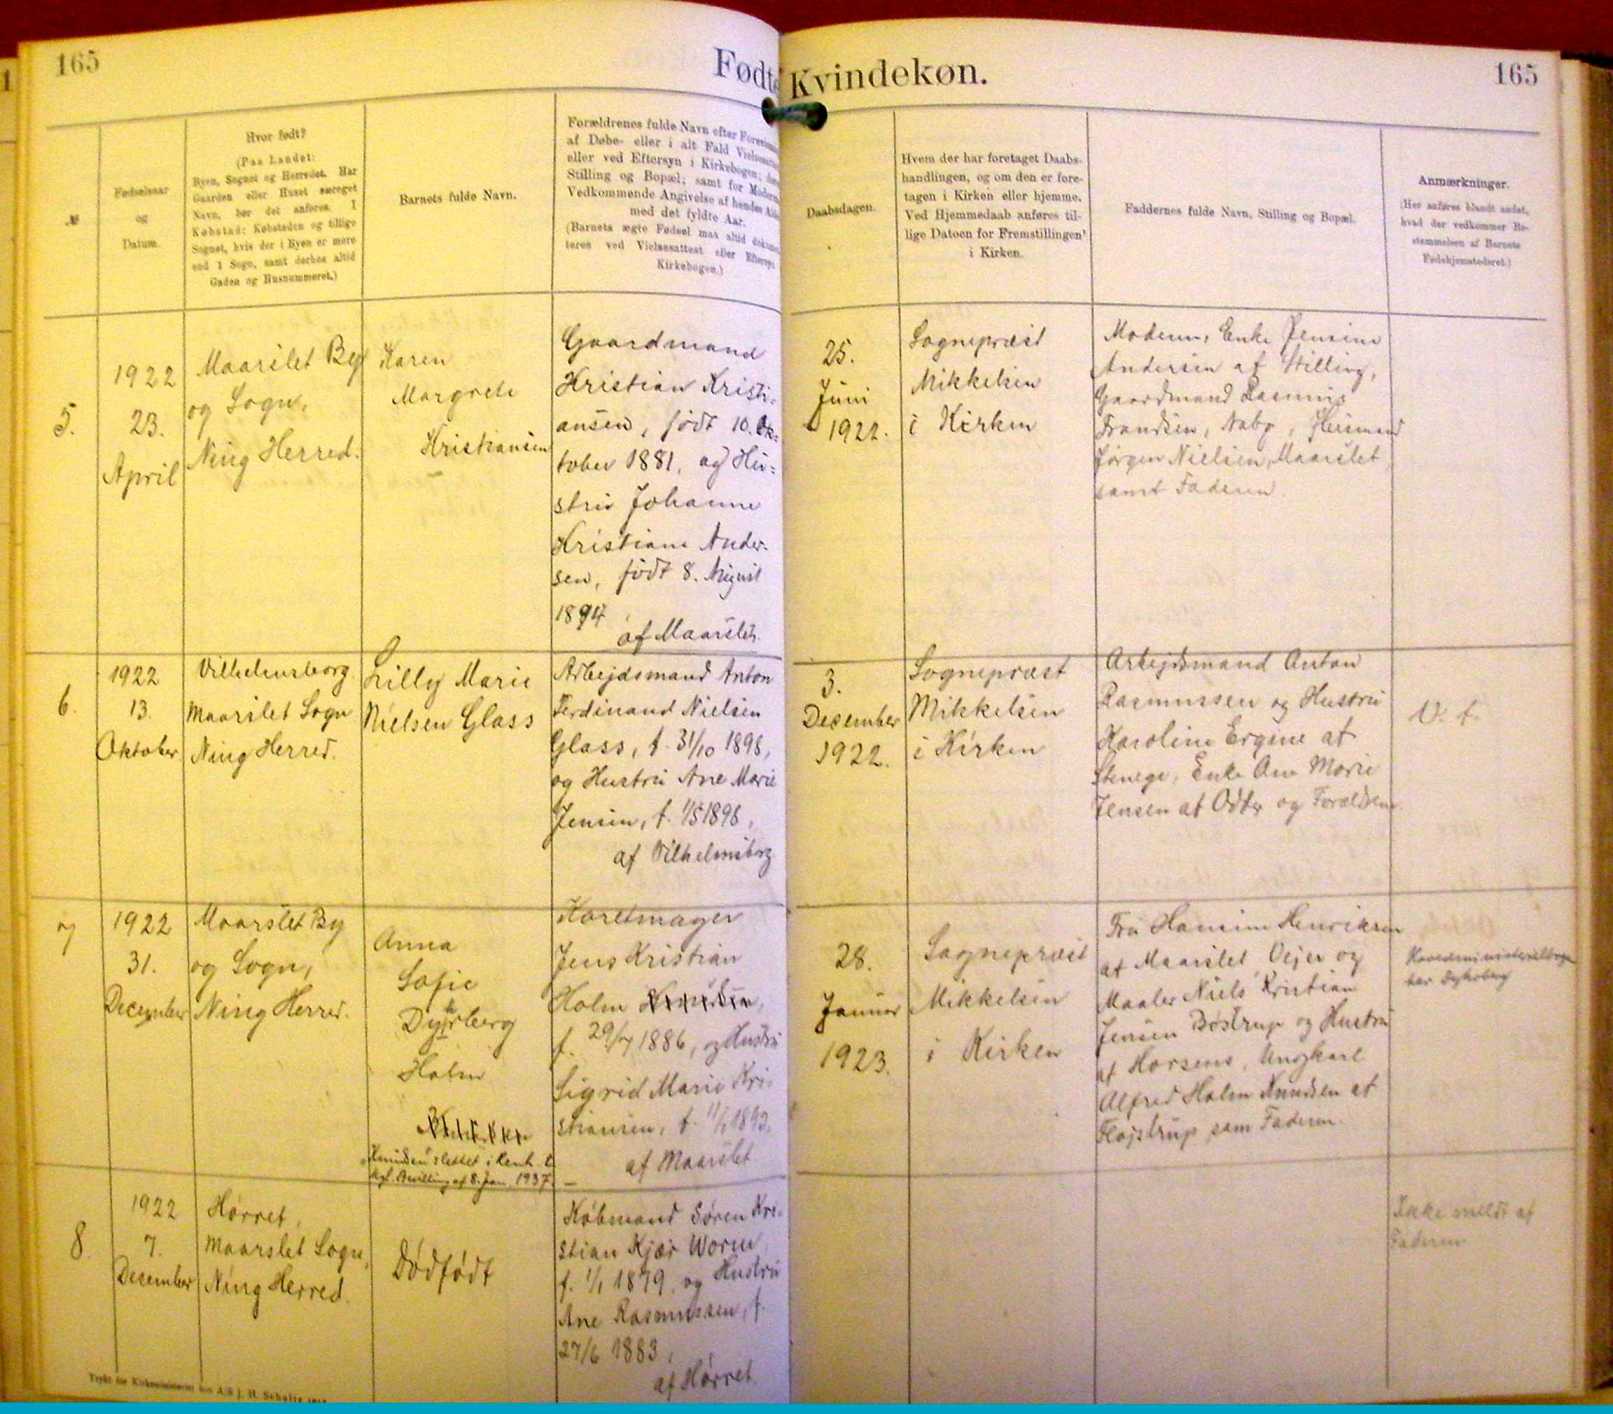 165
Født
Kvindekøn.
165
№
Fødselsaar
og
Datum.
Hvor født?
(Paa Landet:
Byen, Sognet og Herredet. Har
Gaarden eller Huset særeget
Navn, bør det anføres. I
Købstad: Købstaden og tillige
Sognet, hvis der i Byen er mere
end 1 Sogn, samt derhos altid
Gaden og Husnummeret.)
Barnets fulde Navn.
Forældrenes fulde Navn efter
af Døbe- eller i alt Fald
eller ved Eftersyn i Kirkebogen;
Stilling og Bopæl; samt for
Vedkommende Angivelse af hendes
med det fyldte Aar.
(Barnets ægte Fødsel maa altid
teres ved Vielsesattest eller
Kirkebogen.)
Daabsdagen.
Hvem der har foretaget Daabs-
handlingen, og om den er fore-
tagen i Kirken eller hjemme.
Ved Hjemmedaab anføres til-
lige Datoen for Fremstillingen
i Kirken.
Faddernes fulde Navn, Stilling og Bopæl.
Anmærkninger.
(Her anføres blandt andet,
hvad der vedkommer Be-
stemmelsen af Barnets
Fødehjemstedsret.)
5.
1922
23.
April
Maarslet By
og Sogn,
Ning Herred.
Karen
Margrete
Kristiansen
Gaardmand
Kristian Kristi-
ansen, født 10. Ok-
tober 1881, og Hu-
stru Johanne
Kristiane Ander-
sen, født 8. August
1894
af Maarslet.
25.
Juni
1922.
Sognepræst
Mikkelsen
i Kirken
Moderen, Enke Jensine
Andersen af Stilling,
Gaardmand Rasmus
Frandsen, Nabo, Husmand
Jørgen Nielsen, Maarslet
samt Faderen.
6.
1922
13.
Oktober
Vilhelmsborg
Maarslet Sogn
Ning Herred.
Lilly Marie
Nielsen Glass
Arbejdsmand Anton
Ferdinand Nielsen
Glass, f. 31/10 1898,
og Hustru Ane Marie
Jensen, f. 1/5 1898,
af Vilhelmsborg
3.
December
1922.
Sognepræst
Mikkelsen
i Kirken
Arbejdsmand Anton
Rasmussen og Hustru
Karoline af
Enke Ane Marie
Jensen af Odder og Forældrene.
7
1922
31.
December
Maarslet By
og Sogn,
Ning Herred.
Anna
Sofie
Dyhrberg
Holm
Knudsen slettet i Henh. t.
kgl. Bevilling af 8. Jan. 1937.
Karetmager
Jens Kristian
Holm Knudsen,
f. 29/7 1886, og Hustru
Sigrid Marie Kri-
stiansen, f. 11/1 1893,
af Maarslet
28.
Januar
1923.
Sognepræst
Mikkelsen
i Kirken
Fru Hansine Henriksen
af Maarslet Vejer og
Maaler Niels Kristian
Jensen Bøstrup og Hustru
af Horsens, Ungkarl
Alfred Holm Knudsen af
Fløjstrup, sam Faderen.
Hovedministerialbogen
har Dyhrberg
8.
1922
7.
December
Hørret,
Maarslet Sogn,
Ning Herred.
Dødfødt
Købmand Søren Kri-
stian Kjær Worm,
f. 1/1 1879, og Hustru
Ane Rasmussen, f.
27/6 1883,
af Hørret.
Ikke meldt af
Faderen